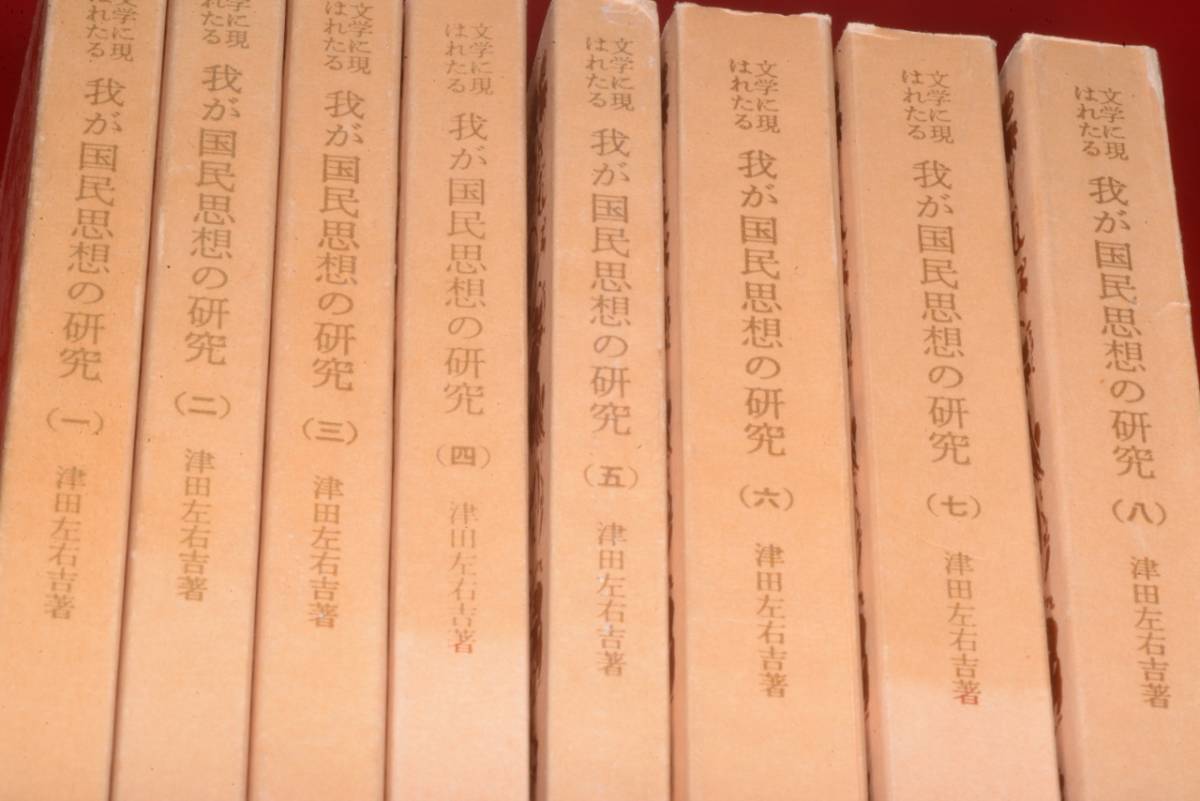 文学に現
はれたる
我が国民思想の研究
(一)
津田左右吉著
文学に現
はれたる
我が国民思想の研究
(二)
津田左右吉著
文学に現
はれたる
我が国民思想の研究
(三)
津田左右吉著
文学に現
はれたる
我が国民思想の研究
(四)
津田左右吉著
文学に現
はれたる
我が国民思想の研究
(五)
津田左右吉著
文学に現
はれたる
我が国民思想の研究
(六)
津田左右吉著
文学に現
はれたる
我が国民思想の研究
(七)
津田左右吉著
文学に現
はれたる
我が国民思想の研究
(八)
津田左右吉著